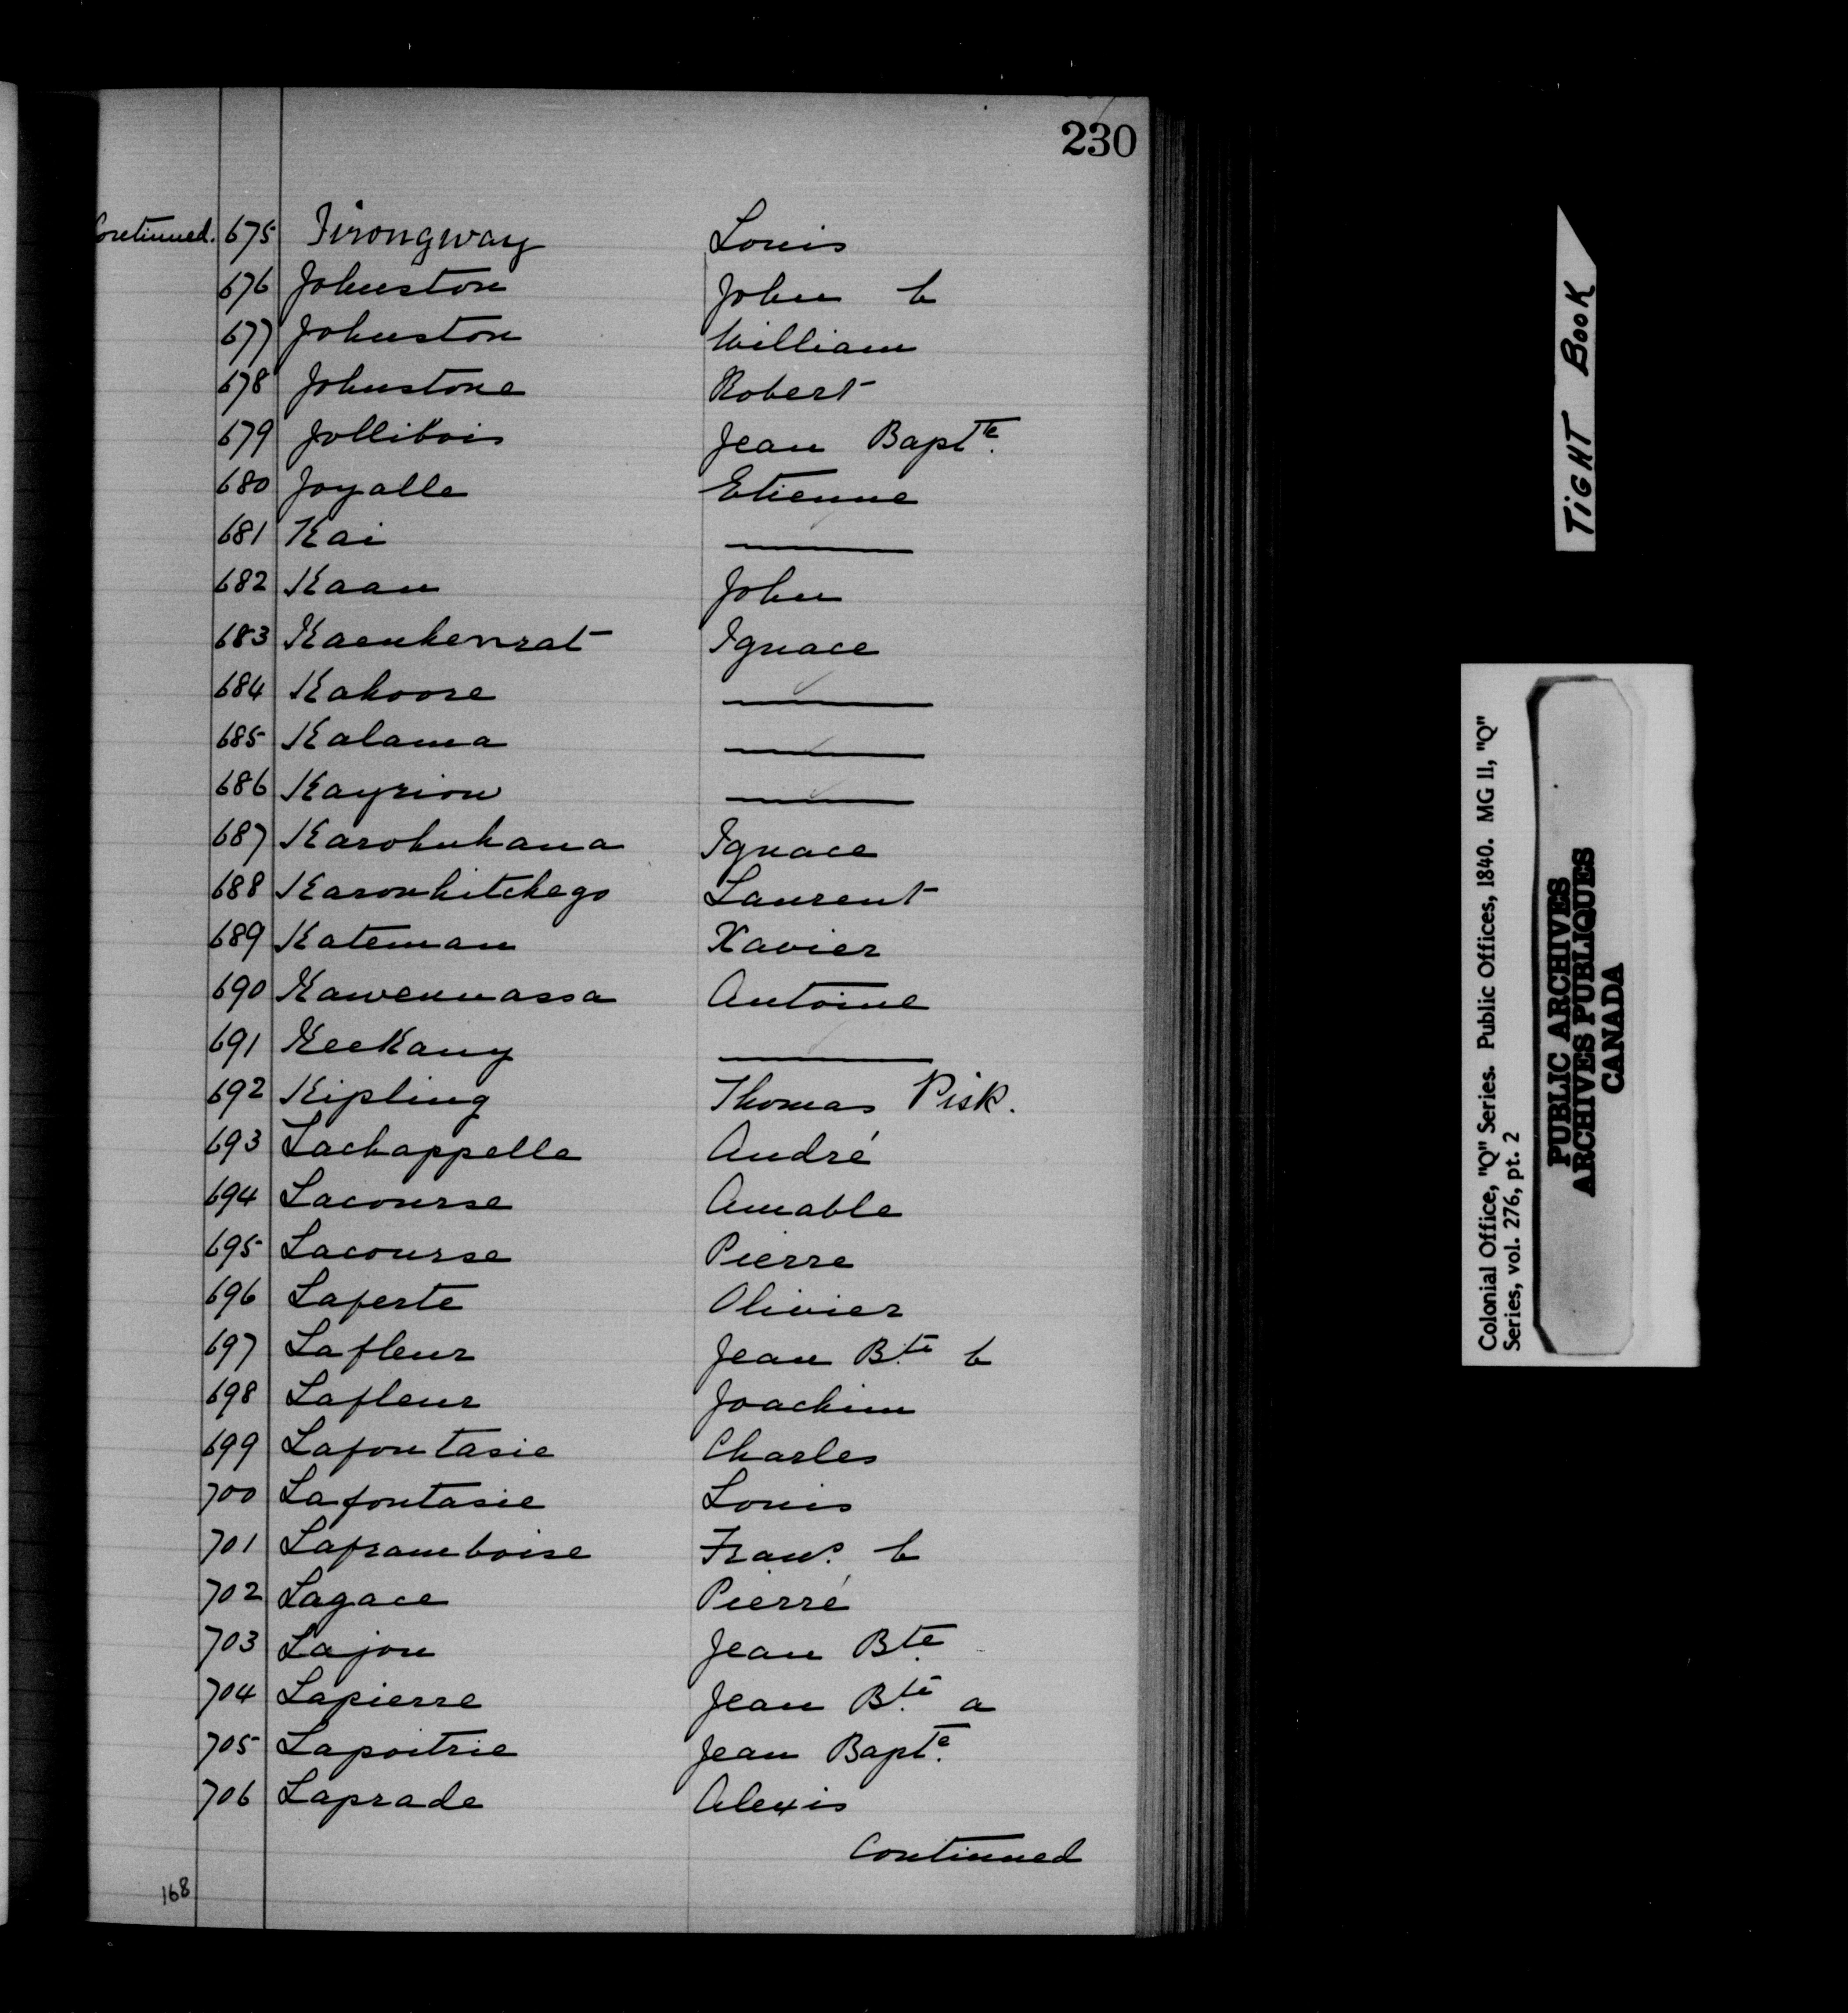 230
Continued. 675 Jirongway Louis
676 Johnston John b
677 Johnston William
678 Johnstone Robert
679 Jollibois Jean Bapte.
680 Joyalle Etienne
681 Kai ———
682 Kaan John
683 Kaenhenrat Ignace
684 Kahoore ———
685 Kalama ———
686 Kayriow ———
687 Karohuhana Ignace
688 Karonhitchego Laurent
689 Kateman Xavier
690 Kawennassa Antoine
691 KeeKany ———
692 Kipling Thomas Pisk.
693 Lachappelle André
694 Lacourse Amable
695 Lacourse Pierre
696 Laferte Olivier
697 Lafleur Jean Bte. b
698 Lafleur Joachim
699 Lafontasie Charles
700 Lafontasie Louis
701 Laframboise Frans. b
702 Lagace Pierré
703 Lajon Jean Bte.
704 Lapierre Jean Bte. a
705 Lapoitrie Jean Bapte.
706 Laprade Alexis
Continued
168
TIGHT BOOK
Colonial Office, "Q" Series. Public Offices, 1840. MG 11, "Q"
Series, vol. 276, pt. 2
PUBLIC ARCHIVES
ARCHIVES PUBLIQUES
CANADA